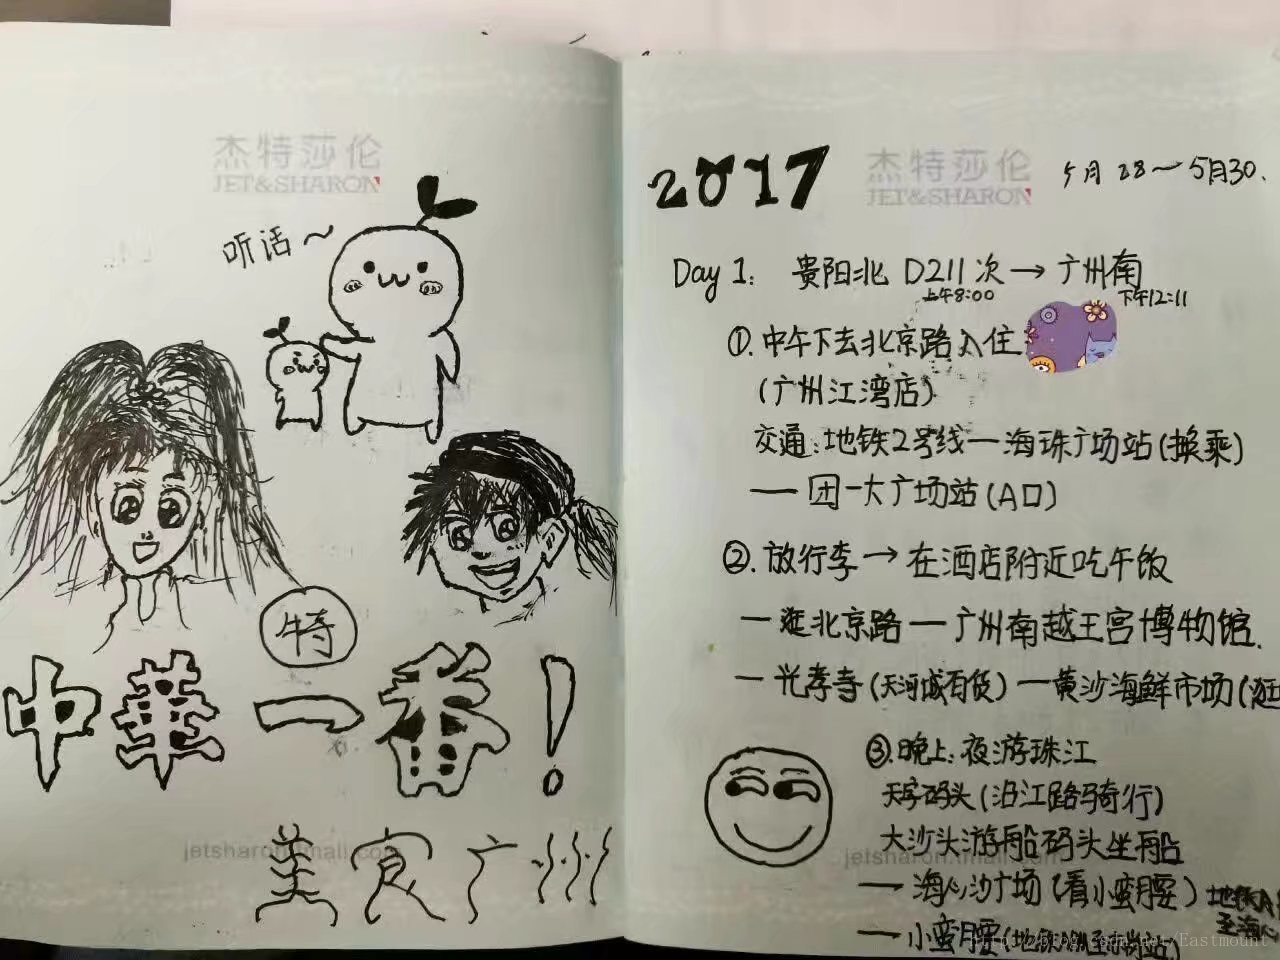 杰特莎伦
JET&SHARON
听话~
特
中華一番!
美食广州
jetsharon.tmall.com
2017
杰特莎伦
JET&SHARON
5月28~5月30.
Day 1: 贵阳北 D211次→广州南
上午8:00
下午12:11
①.中午下去北京路入住
(广州江湾店)
交通:地铁2号线—海珠广场站(换乘)
—团一大广场站(A口)
②.放行李→在酒店附近吃午饭
—逛北京路—广州南越王宫博物馆.
—光孝寺(天河城百货)—黄沙海鲜市场(逛
③.晚上:夜游珠江
天字码头(沿江路骑行)
大沙头游船码头坐船
jetsharon.tmall.com
—海心沙广场(看小蛮腰)
—小蛮腰
http://blog.csdn.net/Eastmount